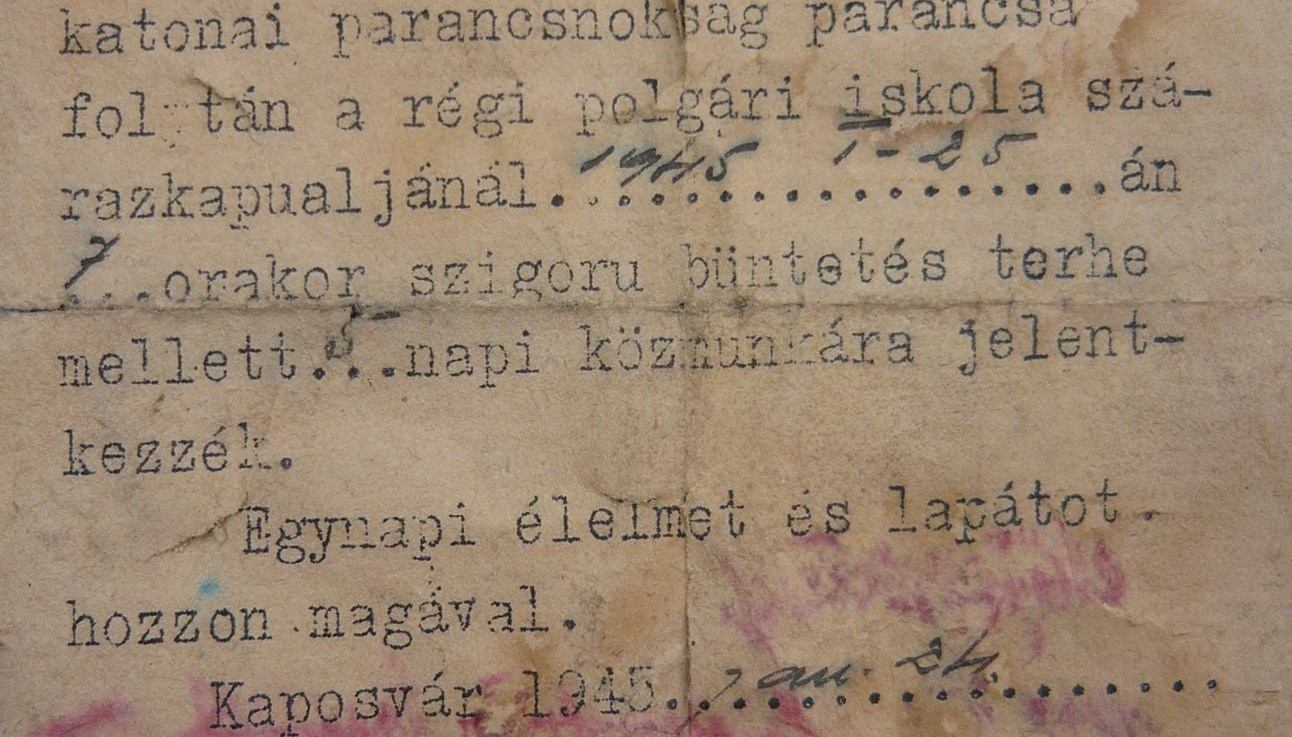 katonai parancsnokság parancsa
fol tán a régi polgári iskola szá-
razkapualjánál. 1945 1-25 .án
7...orakor szigoru büntetés terhe
mellett...napi közmunkára jelent-
kezzék.
Egynapi élelmet és lapátot.
hozzon magával.
Kaposvár 1945. jan. 24.